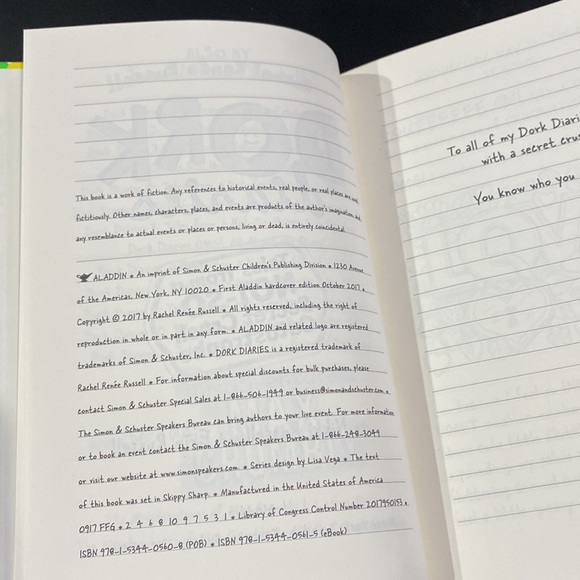 This book is a work of fiction. Any references to historical events, real people, or real places are used
fictitiously. Other names, characters, places, and events are products of the author's imagination, and
any resemblance to actual events or places or persons, living or dead, is entirely coincidental.
ALADDIN • An imprint of Simon & Schuster Children's Publishing Division • 1230 Avenue
of the Americas, New York, NY 10020 • First Aladdin hardcover edition October 2017 •
Copyright © 2017 by Rachel Renée Russell • All rights reserved, including the right of
reproduction in whole or in part in any form. • ALADDIN and related logo are registered
trademarks of Simon & Schuster, Inc. • DORK DIARIES is a registered trademark of
Rachel Renée Russell • For information about special discounts for bulk purchases, please
contact Simon & Schuster Special Sales at 1-866-506-1949 or business@simonandschuster.com •
The Simon & Schuster Speakers Bureau can bring authors to your live event. For more information
or to book an event contact the Simon & Schuster Speakers Bureau at 1-866-248-3049
or visit our website at www.simonspeakers.com. • Series design by Lisa Vega • The text
of this book was set in Skippy Sharp. • Manufactured in the United States of America
0917 FFG • 2 4 6 8 10 9 7 5 3 1 • Library of Congress Control Number 2017950153 •
ISBN 978-1-5344-0560-8 (POB) • ISBN 978-1-5344-0561-5 (eBook)
To all of my Dork Diari
with a secret crus
You know who you